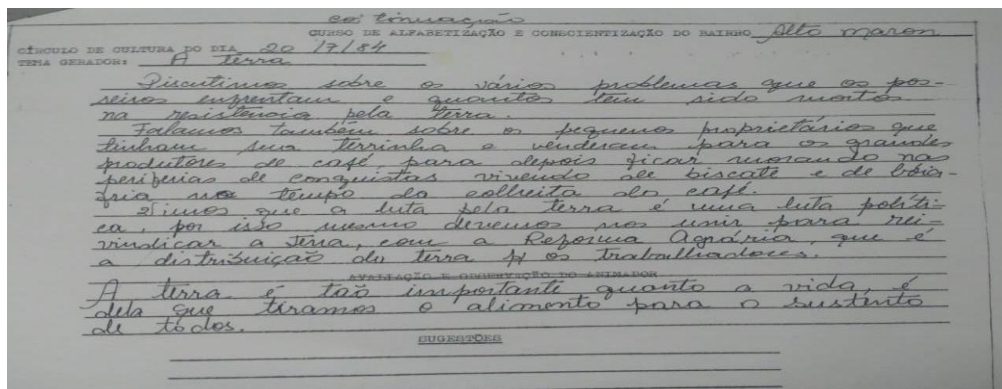 continuação
CURSO DE ALFABETIZAÇÃO E CONSCIENTIZAÇÃO DO BAIRRO Alto maron
CÍRCULO DE CULTURA DO DIA 20 /7/84
TEMA GERADOR: A terra
Discutimos sobre os vários problemas que os pos-
seiros enfrentam e quantos tem sido mortos
na resistência pela terra.
Falamos também sobre os pequenos proprietários que
tinham sua terrinha e venderam para os grandes
produtores de café, para depois ficar morando nas
periferias de conquistas vivendo de biscate e de bóia-
fria no tempo da colheita do café.
Vimos que a luta pela terra é uma luta políti-
ca, por isso mesmo devemos nos unir para rei-
vindicar a terra, com a Reforma Agrária, que é
a distribuição da terra p/ os trabalhadores.
AVALIAÇÃO E OBSERVAÇÃO DO ANIMADOR
A terra é tão importante quanto a vida, é
dela que tiramos o alimento para o sustento
de todos.
SUGESTÕES